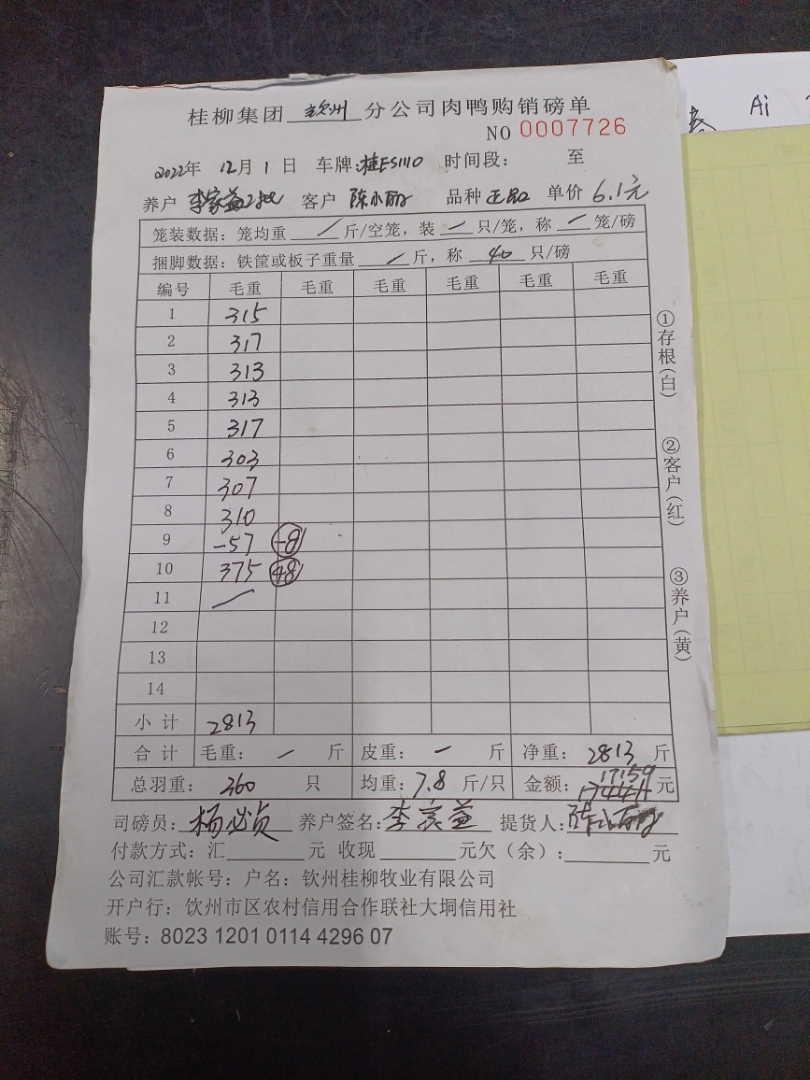 桂柳集团 钦州 分公司肉鸭购销磅单
NO 0007726
2022年 12月 1日 车牌:桂ES1110 时间段: 至
养户 李家益2批 客户 陈小丽 品种 正品 单价 6.1元
笼装数据: 笼均重 / 斤/空笼, 装 一 只/笼, 称 一 笼/磅
捆脚数据: 铁筐或板子重量 一 斤, 称 40 只/磅
编号 毛重 毛重 毛重 毛重 毛重 毛重
1 315
2 317
3 313
4 313
5 317
6 303
7 307
8 310
9 -57 -8
10 375 48
11 /
12
13
14
小计 2813
合计 毛重: 一 斤 皮重: 一 斤 净重: 2813 斤
17159
总羽重: 360 只 均重: 7.8 斤/只 金额: 元
司磅员: 杨必贞 养户签名: 李家益 提货人: 陈小丽
付款方式: 汇 元 收现 元欠(余): 元
公司汇款帐号: 户名: 钦州桂柳牧业有限公司
开户行: 钦州市区农村信用合作联社大垌信用社
账号: 8023 1201 0114 4296 07
①存根(白)
②客户(红)
③养户(黄)
Ai